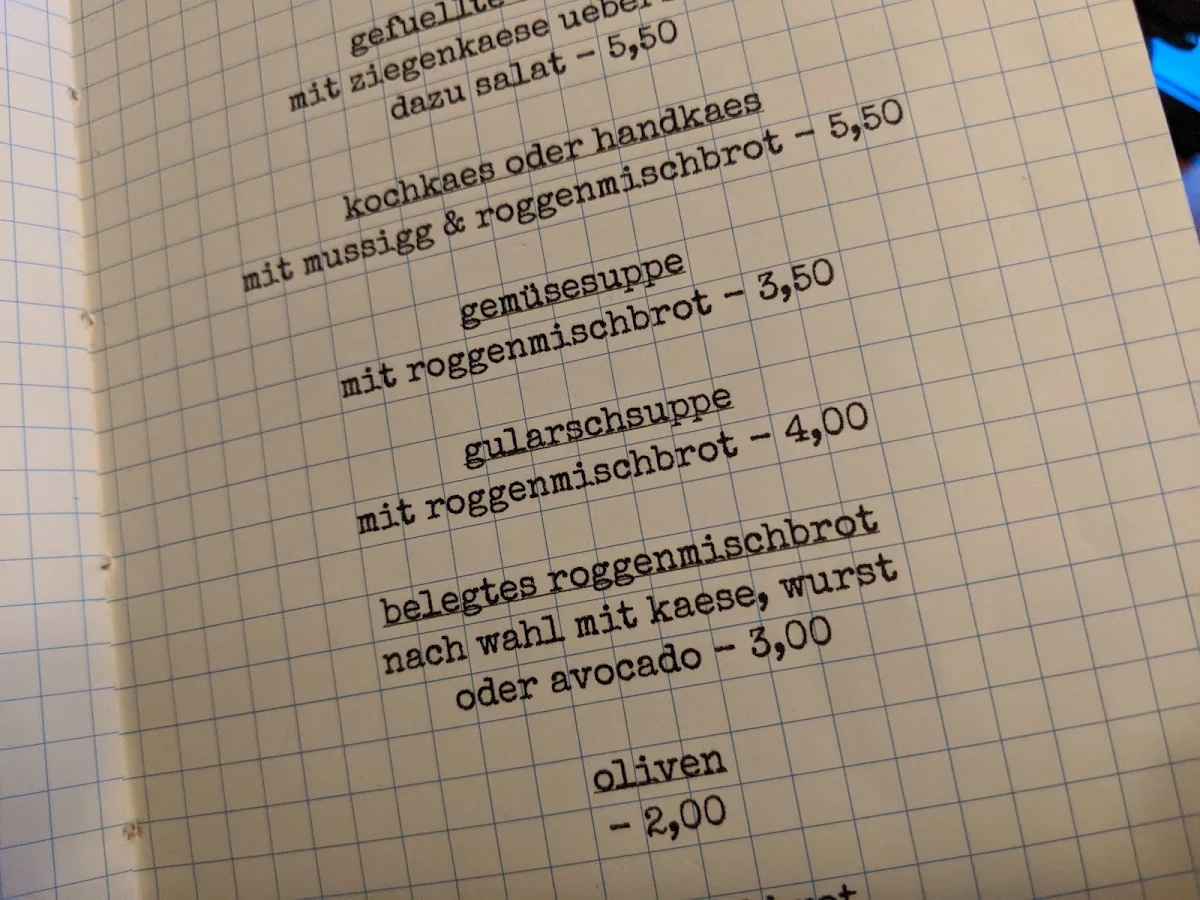 gefuellte
mit ziegenkaese
dazu salat - 5,50
kochkaes oder handkaes
mit mussigg & roggenmischbrot - 5,50
gemüsesuppe
mit roggenmischbrot - 3,50
gularschsuppe
mit roggenmischbrot - 4,00
belegtes roggenmischbrot
nach wahl mit kaese, wurst
oder avocado - 3,00
oliven
- 2,00